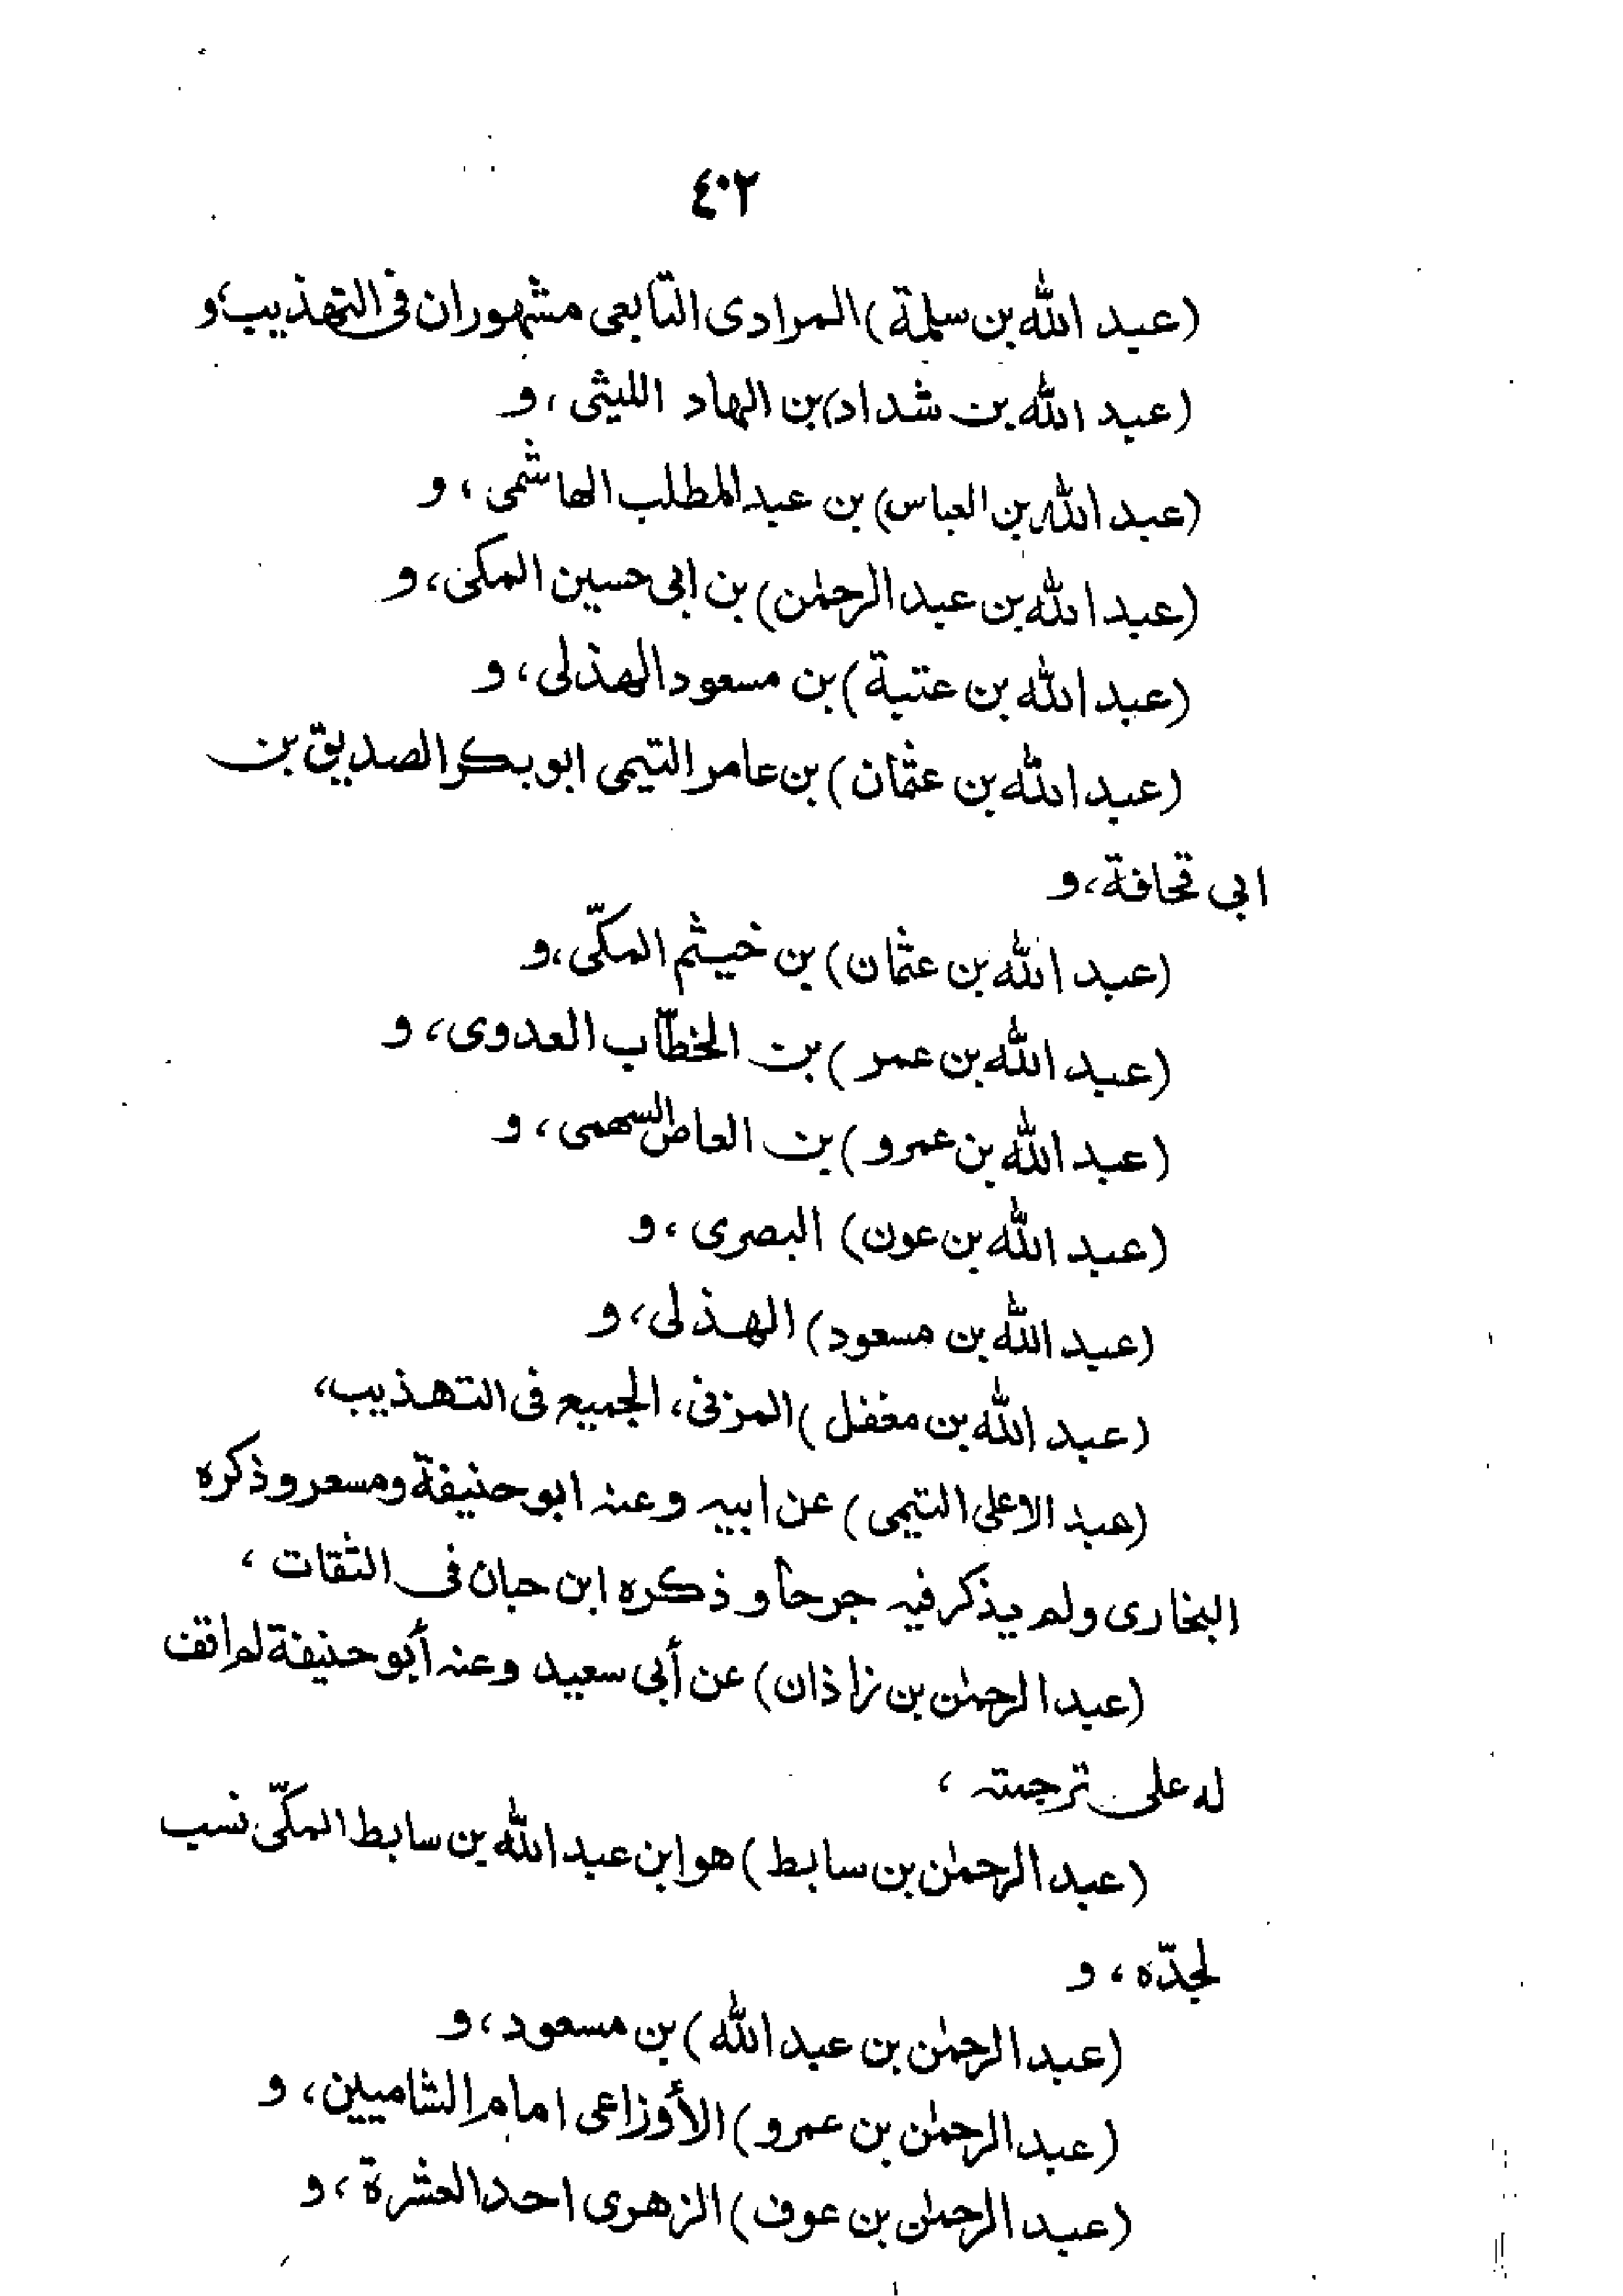 ٤٠٢
(عبد الله بن سلمة) المرادى التابعى مشهوران فى التهذيب، و
(عبد الله بن شداد) بن الهاد الليثى، و
(عبد الله بن العباس) بن عبد المطلب الهاشمى، و
(عبد الله بن عبد الرحمٰن) بن ابى حسين المكى، و
(عبد الله بن عتبة) بن مسعود الهذلى، و
(عبد الله بن عثمان) بن عامر التيمى ابو بكر الصديق بن
ابى قحافة، و
(عبد الله بن عثمان) بن خيثم المكّى، و
(عبد الله بن عمر) بن الخطّاب العدوى، و
(عبد الله بن عمرو) بن العاص السهمى، و
(عبد الله بن عون) البصرى، و
(عبد الله بن مسعود) الهذلى، و
(عبد الله بن مغفل) المزنى، الجميع فى التهذيب،
(عبد الاعلى التيمى) عن ابيه وعنه ابو حنيفة ومسعر وذكره
البخارى ولم يذكر فيه جرحاً وذكره ابن حبان فى الثقات،
(عبد الرحمٰن بن زاذان) عن أبى سعيد وعنه أبو حنيفة لم اقف
له على ترجمته،
(عبد الرحمٰن بن سابط) هو ابن عبد الله بن سابط المكّى نسب
لجدّه، و
(عبد الرحمٰن بن عبد الله) بن مسعود، و
(عبد الرحمٰن بن عمرو) الأوزاعى امام الشاميين، و
(عبد الرحمٰن بن عوف) الزهرى احد العشرة، و